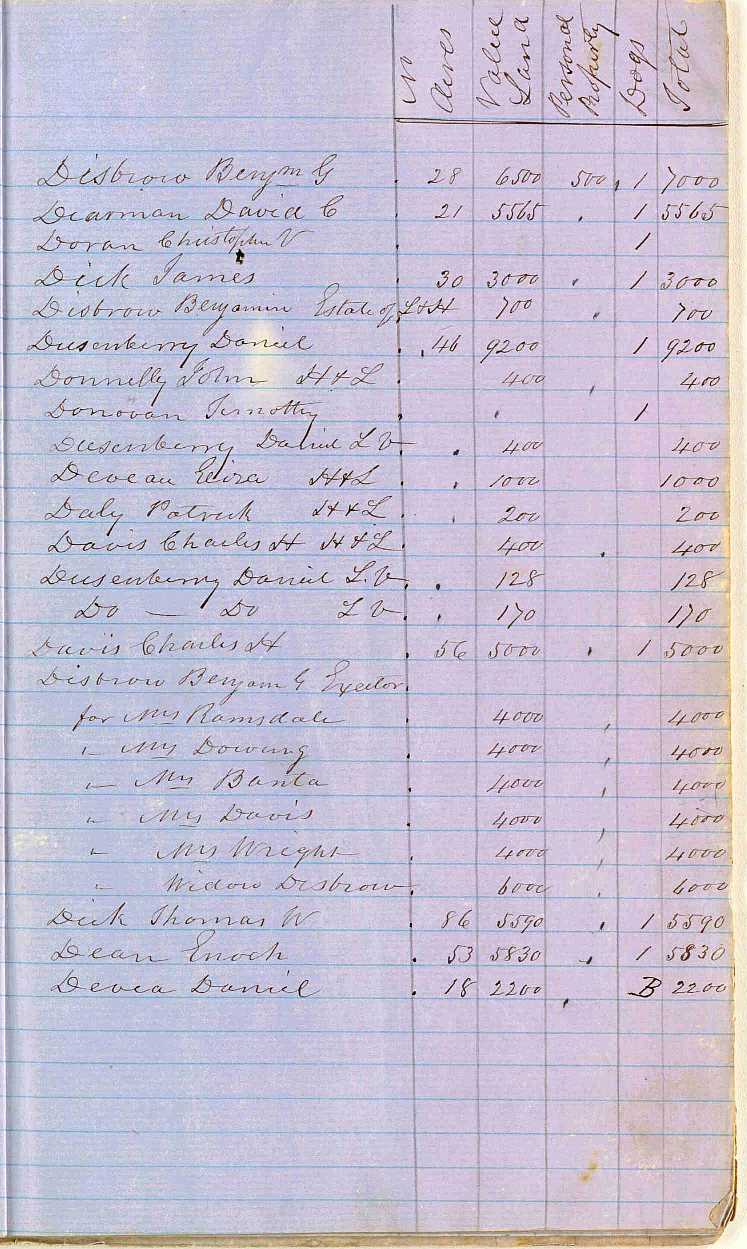 No Acres Value Land Personal Property Dogs Total
Disbrow Benjm G 28 6500 500 1 7000
Dearman David C 21 5565 1 5565
Doran Christopher V 1
Dick James 30 3000 1 3000
Disbrow Benjamin Estate of L & H 700 700
Dusenberry Daniel 46 9200 1 9200
Donnelly John H & L 400 400
Donovan Timothy 1
Dusenberry Daniel L V 400 400
Deveau Eliza H & L 1000 1000
Daly Patrick H & L 200 200
Davis Charles H H & L 400 400
Dusenberry Daniel L. V. 128 128
Do — Do L V 170 170
Davis Charles H 56 5000 1 5000
Disbrow Benjam G Exector
for Mrs Ramsdale 4000 4000
" Mrs Dowing 4000 4000
" Mrs Banta 4000 4000
" Mrs Davis 4000 4000
" Mrs Wright 4000 4000
" Widow Disbrow 6000 6000
Dick Thomas W 86 5590 1 5590
Dean Enoch 53 5830 1 5830
Devea Daniel 18 2200 B 2200